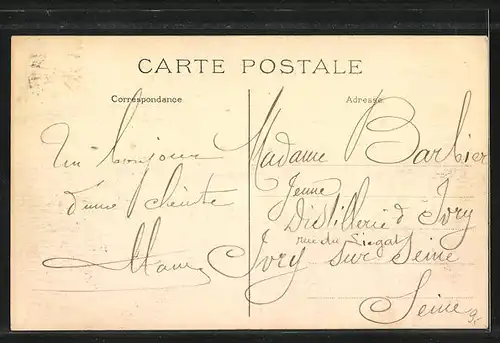 CARTE POSTALE
Correspondance
Adresse
Un bonjour
d'une
Madame Barbier
Jeune
Distillerie d'Ivry
rue du Liégat
Ivry sur Seine
Seine